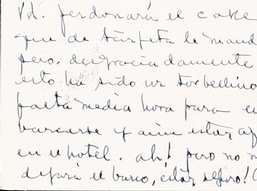 Vd. perdonará el cake
que de tarjeta le mand
pero. desgraciadamente
esto ha sido un torbellino
falta media hora para em
barcarse y aún estar aq
en el hotel. ah! pero no m
dejará el barco, estar seguro!